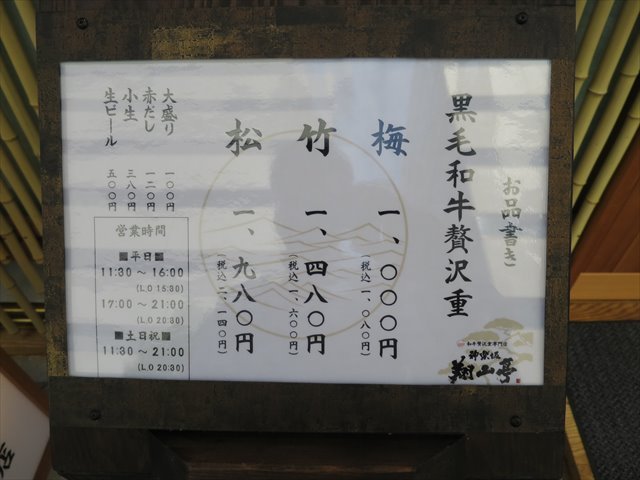 お品書き
黒毛和牛贅沢重
梅 一、〇〇〇円
(税込一、〇八〇円)
竹 一、四八〇円
(税込一、六〇〇円)
松 一、九八〇円
(税込二、一四〇円)
大盛り 一〇〇円
赤だし 一二〇円
小生 三八〇円
生ビール 五〇〇円
営業時間
■平日■
11:30～16:00
(L.O 15:30)
17:00～21:00
(L.O 20:30)
■土日祝■
11:30～21:00
(L.O 20:30)
和牛贅沢重専門店
神楽坂
翔山亭